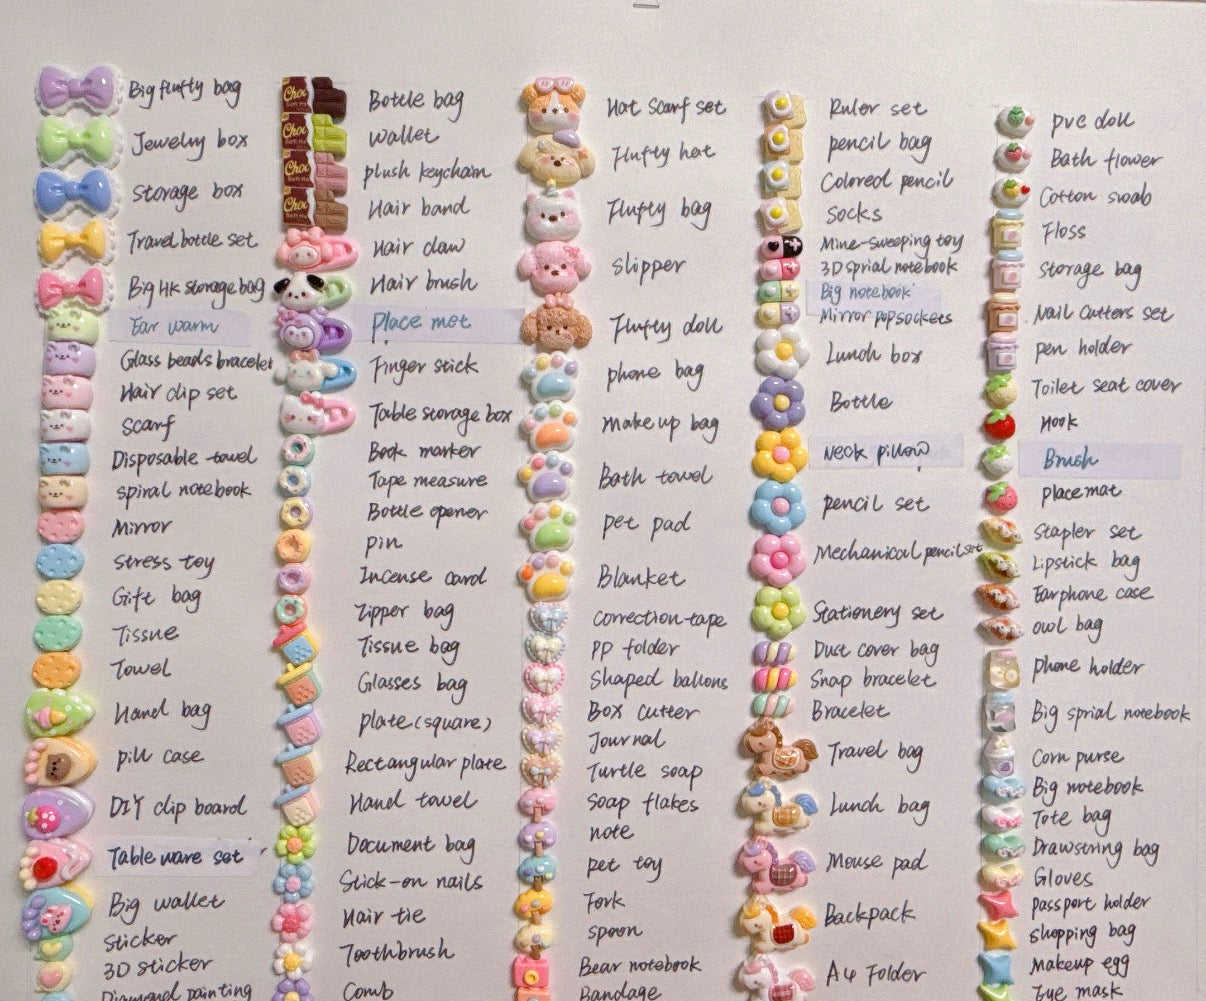 Big fluffy bag
Jewelry box
Storage box
Travel bottle set
Big HK storage bag
Ear warm
Glass beads bracelet
Hair clip set
Scarf
Disposable towel
spiral notebook
Mirror
stress toy
Gift bag
Tissue
Towel
Hand bag
pill case
DIY clip board
Table ware set
Big wallet
Sticker
3D sticker
Diamond painting
Choc
Choc
Choc
Choc
Bottle bag
wallet
plush keychain
Hair band
Hair claw
Hair brush
Place met
Finger stick
Table storage box
Book marker
Tape measure
Bottle opener
pin
Incense card
Zipper bag
Tissue bag
Glasses bag
plate(square)
Rectangular plate
Hand towel
Document bag
Stick-on nails
Hair tie
Toothbrush
Comb
Hat scarf set
Fluffy hat
Fluffy bag
slipper
Fluffy doll
phone bag
Make up bag
Bath towel
pet pad
Blanket
correction tape
PP folder
Shaped ballons
Box cutter
Journal
Turtle soap
soap flakes
note
pet toy
Fork
spoon
Bear notebook
Bandage
Ruler set
pencil bag
Colored pencil
Socks
Mine-sweeping toy
3D sprial notebook
Big notebook
Mirror popsockets
Lunch box
Bottle
Neck pillow
pencil set
Mechanical pencil set
Stationery set
Dust cover bag
Snap bracelet
Bracelet
Travel bag
Lunch bag
Mouse pad
Backpack
A4 Folder
pvc doll
Bath flower
Cotton swab
Floss
Storage bag
Nail cutters set
pen holder
Toilet seat cover
Hook
Brush
placemat
Stapler set
Lipstick bag
Earphone case
owl bag
phone holder
Big sprial notebook
Corn purse
Big notebook
Tote bag
Drawstring bag
Gloves
passport holder
shopping bag
Makeup egg
Eye mask